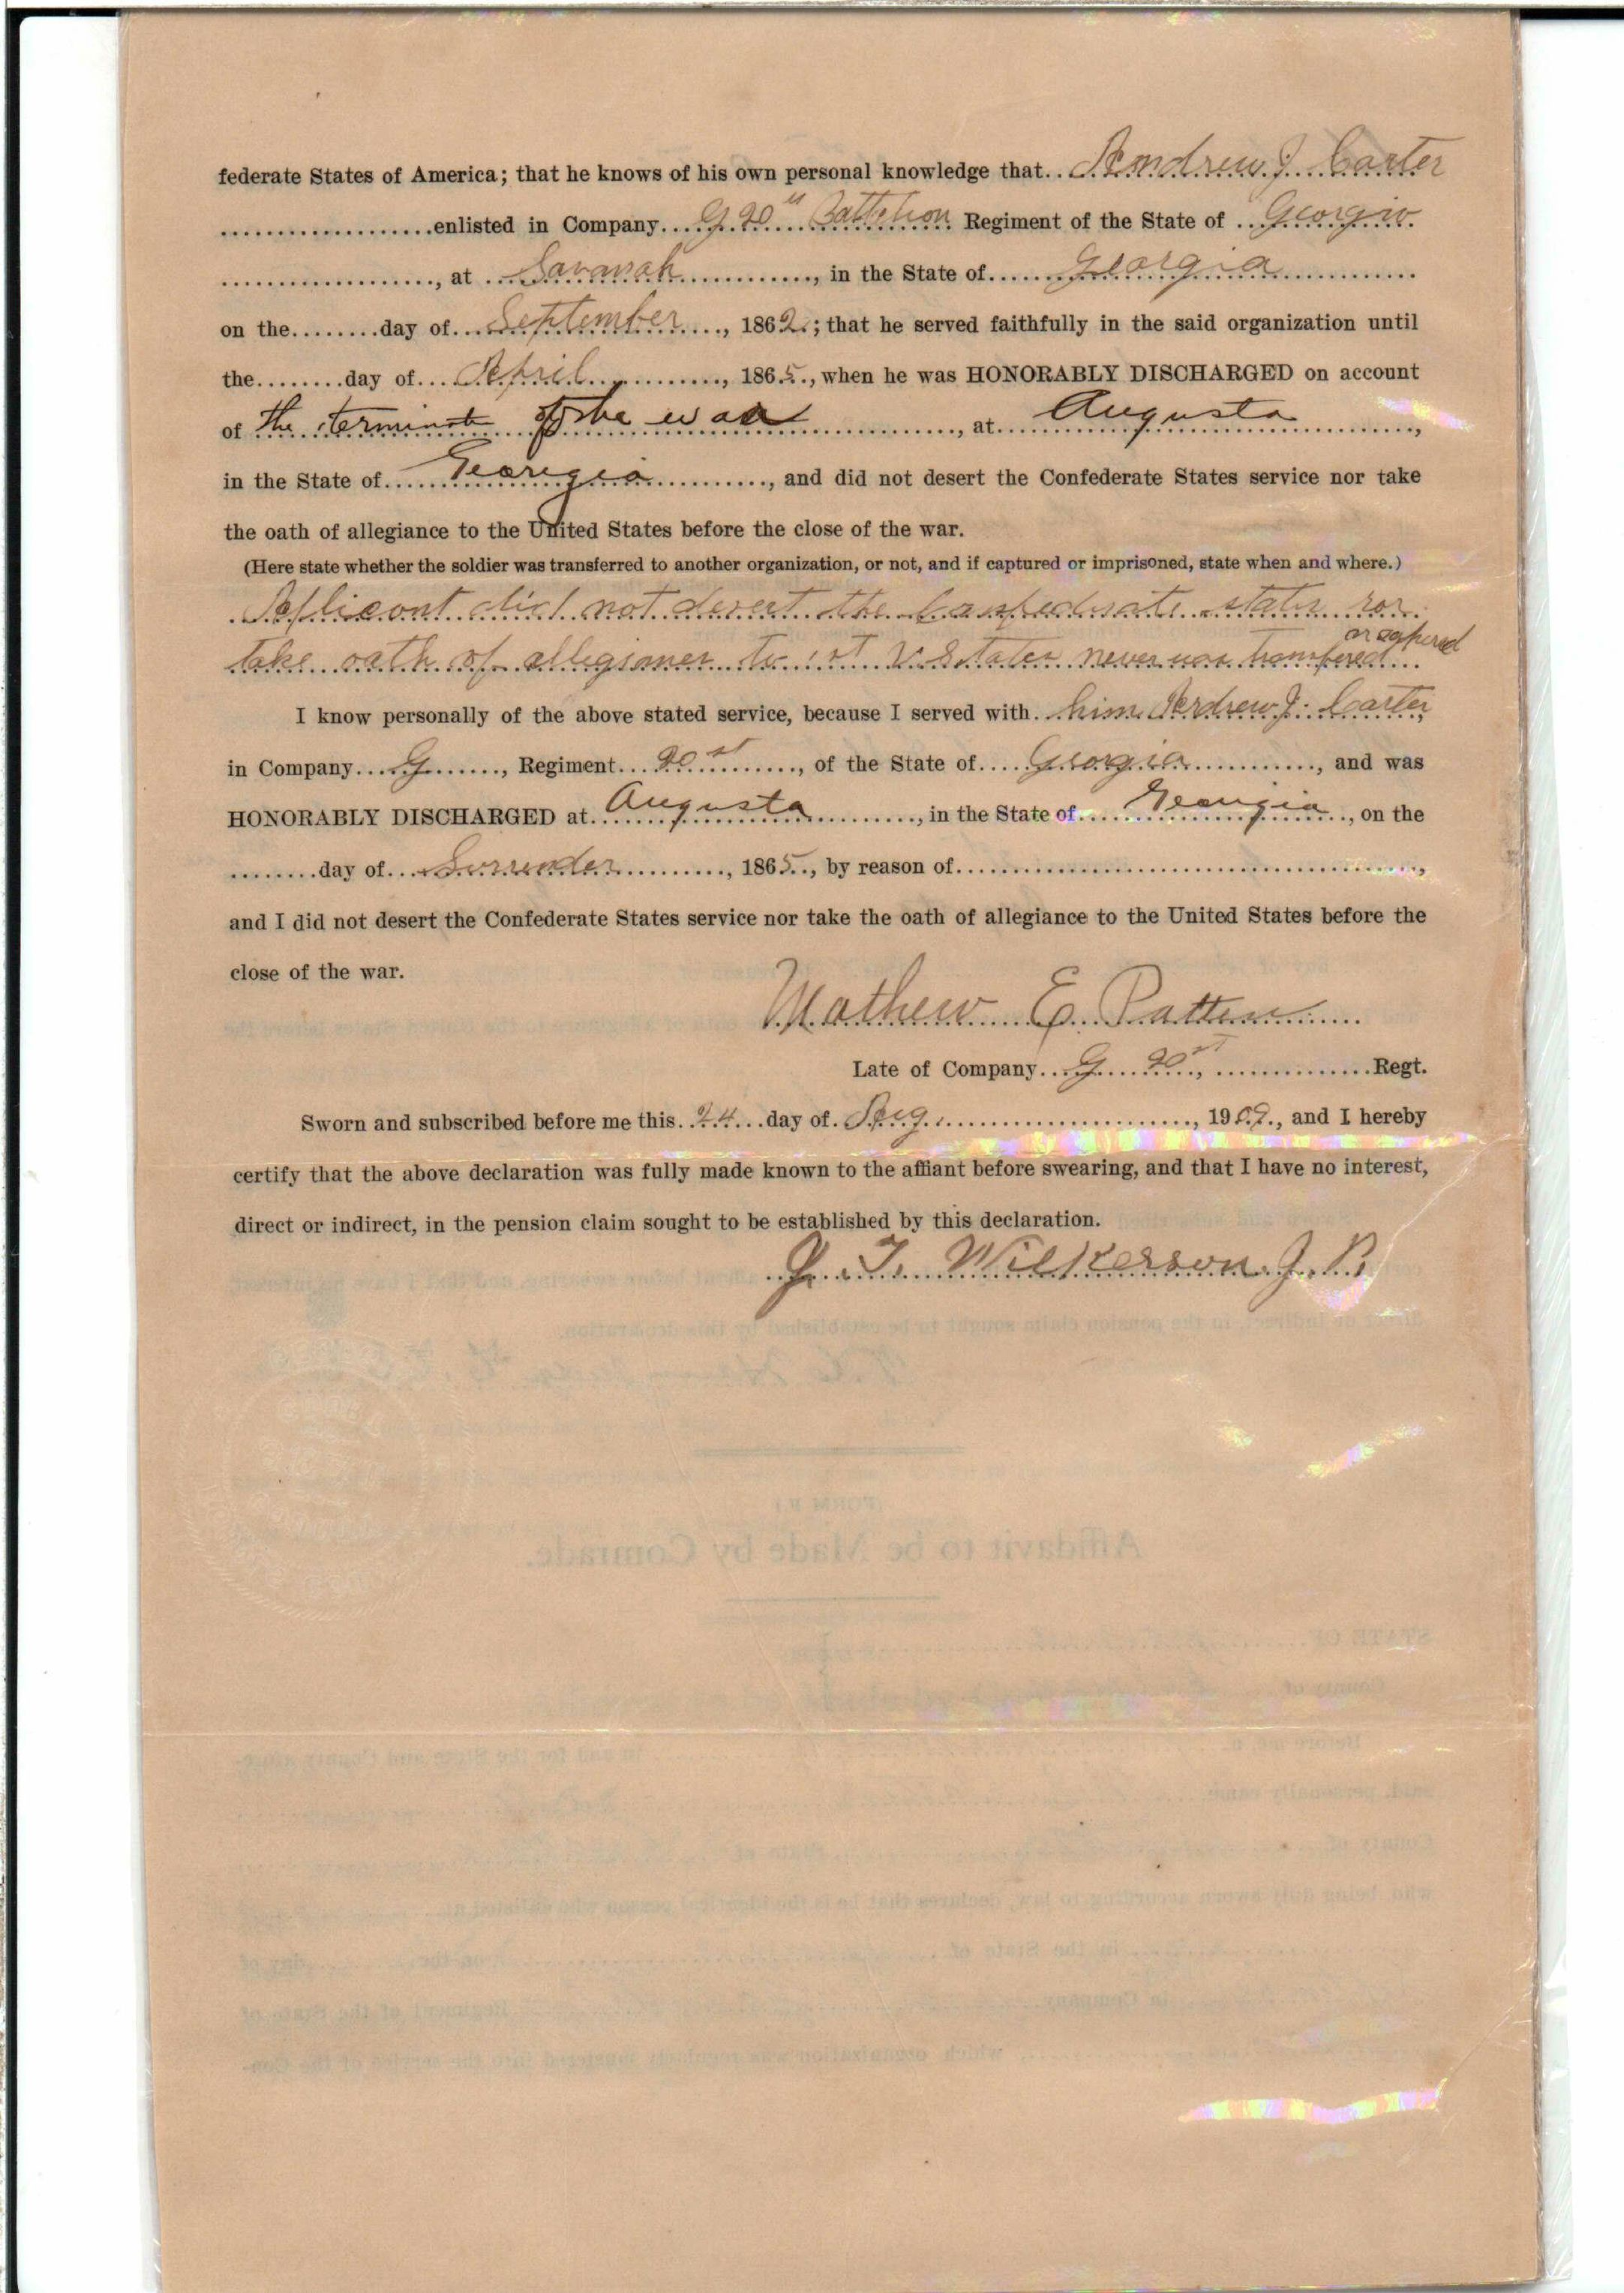 federate States of America; that he knows of his own personal knowledge that Andrew J. Carter
enlisted in Company G 20 Battelion Regiment of the State of Georgia
, at Savanah, in the State of Georgia
on the day of September, 1862; that he served faithfully in the said organization until
the day of April, 1865, when he was HONORABLY DISCHARGED on account
of the terminate of the war, at Augusta,
in the State of Georgia, and did not desert the Confederate States service nor take
the oath of allegiance to the United States before the close of the war.
(Here state whether the soldier was transferred to another organization, or not, and if captured or imprisoned, state when and where.)
Applicant did not desert the Confederate states nor
or captured
take oath of allegiance to U States never was transfered
I know personally of the above stated service, because I served with him Andrew J. Carter
in Company G, Regiment 20st, of the State of Georgia, and was
HONORABLY DISCHARGED at Augusta, in the State of Georgia, on the
day of Surrender, 1865, by reason of
and I did not desert the Confederate States service nor take the oath of allegiance to the United States before the
close of the war.
Mathew E. Patten
Late of Company G 20st, Regt.
Sworn and subscribed before me this 24 day of Aug., 1909, and I hereby
certify that the above declaration was fully made known to the affiant before swearing, and that I have no interest,
direct or indirect, in the pension claim sought to be established by this declaration.
T. Wilkerson J. P.